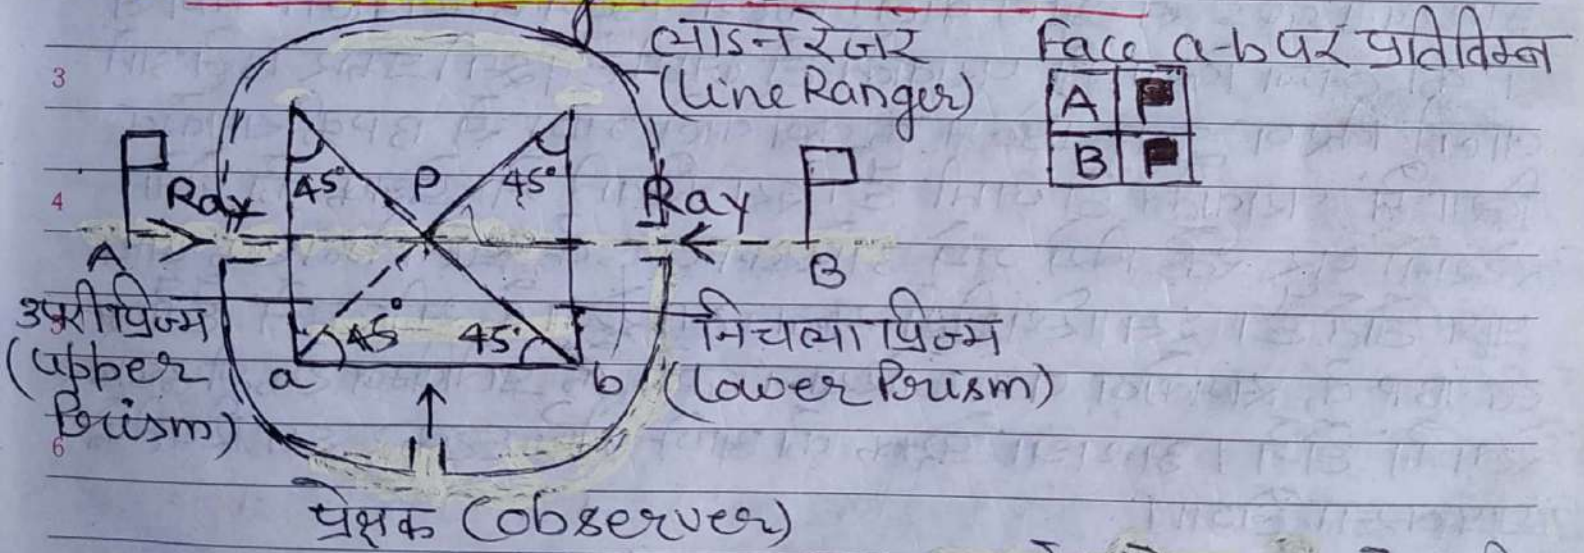 लाइन रेंजर
(Line Ranger)
Face a-b पर प्रतिविम्ब
A
B
3
4
6
45°
P
45°
Ray
Ray
A
B
उपरी प्रिज्म
(upper
Prism)
45°
45°
a
b
निचला प्रिज्म
(Lower Prism)
प्रेक्षक (observer)